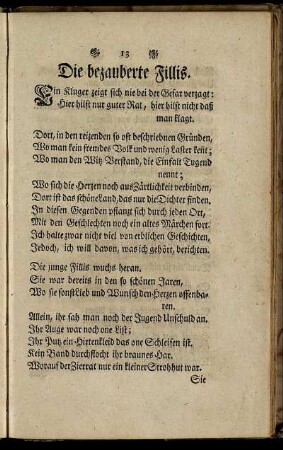 13
Die bezauberte Fillis.
Ein Kluger zeigt sich nie bei der Gefar verzagt:
Hier hilft nur guter Rat, hier hilft nicht daß
man klagt.
Dort, in den reizenden so oft beschriebnen Gründen,
Wo man kein fremdes Volk und wenig Laster kent;
Wo man den Witz Verstand, die Einfalt Tugend
nennt;
Wo sich die Herzen noch aus Zärtlichkeit verbinden,
Dort ist das schöne Land, das nur die Dichter finden.
In diesen Gegenden pflanzt sich durch jeden Ort,
Mit den Geschlechten noch ein altes Märchen fort.
Ich halte zwar nicht viel von erblichen Geschichten,
Jedoch, ich will davon, was ich gehört, berichten.
Die junge Fillis wuchs heran.
Sie war bereits in den so schönen Jaren,
Wo sie sonst Lieb und Wunsch den Herzen offenba-
ren.
Allein, ihr sah man noch der Jugend Unschuld an.
Ihr Auge war noch one List;
Ihr Putz ein Hirtenkleid das one Schleifen ist.
Kein Band durchflocht ihr braunes Har.
Worauf der Zierrat nur ein kleiner Strohhut war.
Sie